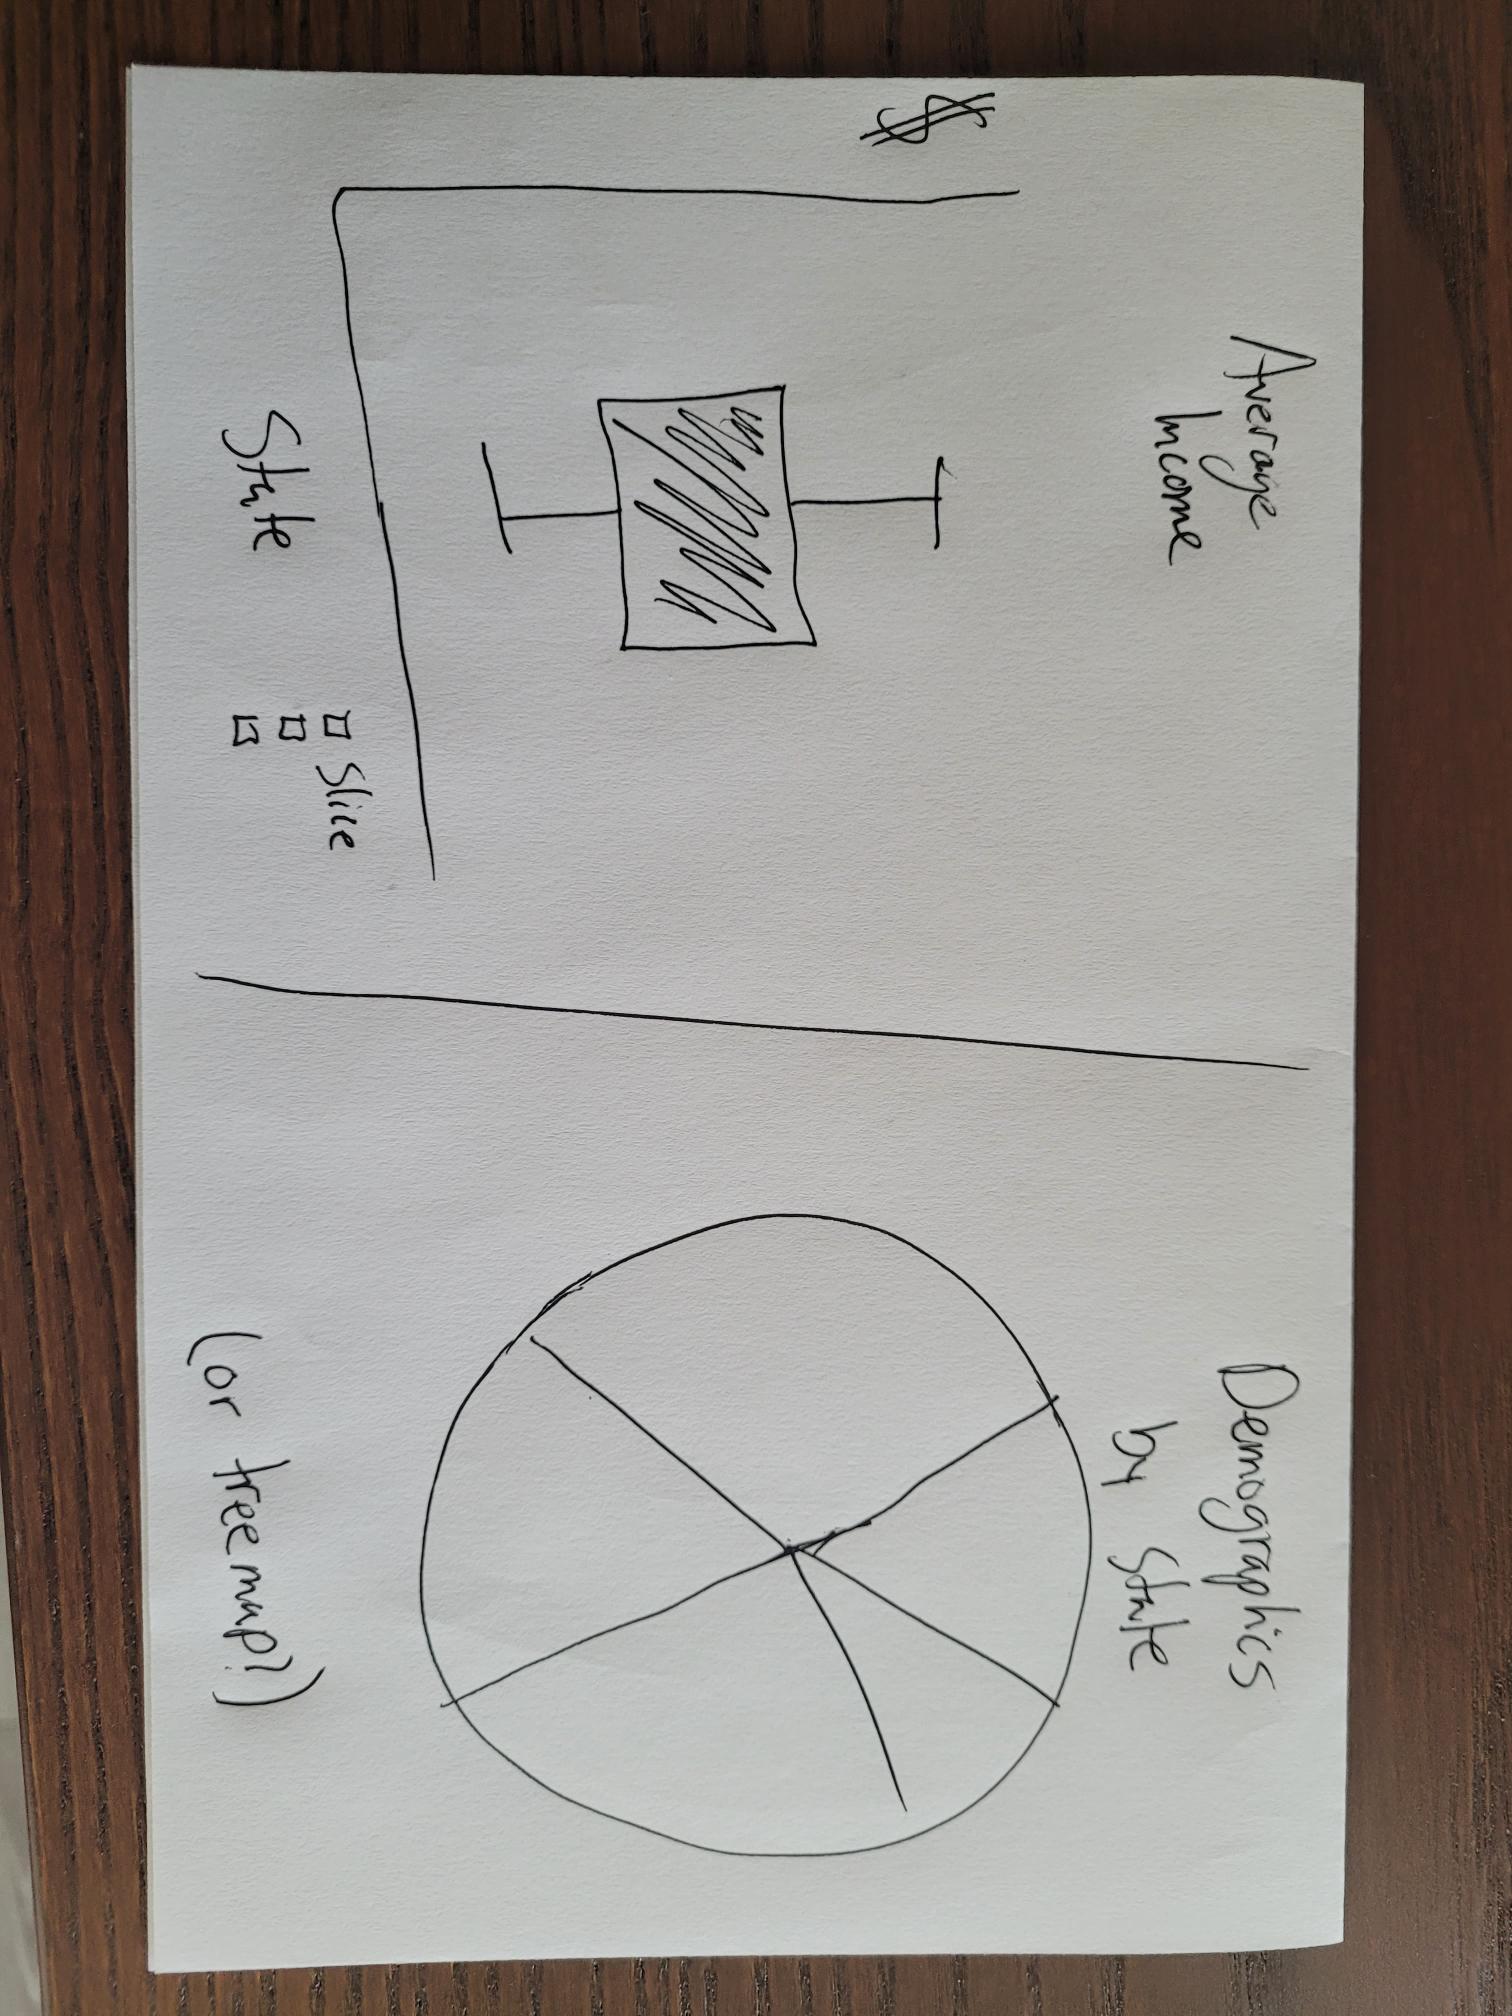 Average
Income
$
State
Slice
Demographics
by State
(or treemap?)